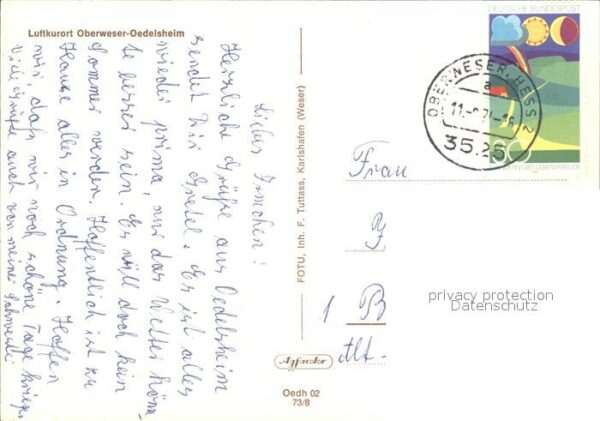 Luftkurort Oberweser-Oedelsheim
Liebes Irmchen!
Herzliche Grüße aus Oedelsheim
sendet Dir Gretel. Es ist alles
wieder prima, nur das Wetter könn-
te besser sein. Es will doch kein
Sommer werden. Hoffentlich ist zu
Hause alles in Ordnung. Hoffen
wir, daß wir noch schöne Tage kriegen
Viele Grüße auch von meiner Schwester
FOTU, Inh. F. Tuttass, Karlshafen (Weser)
Agfacolor
Oedh 02
73/8
DEUTSCHE BUNDESPOST
OBERWESER, HESS 2
a
3525
WANDERN GIBT LEBENSFREUDE
Frau
1 B
Alt.
privacy protection
Datenschutz